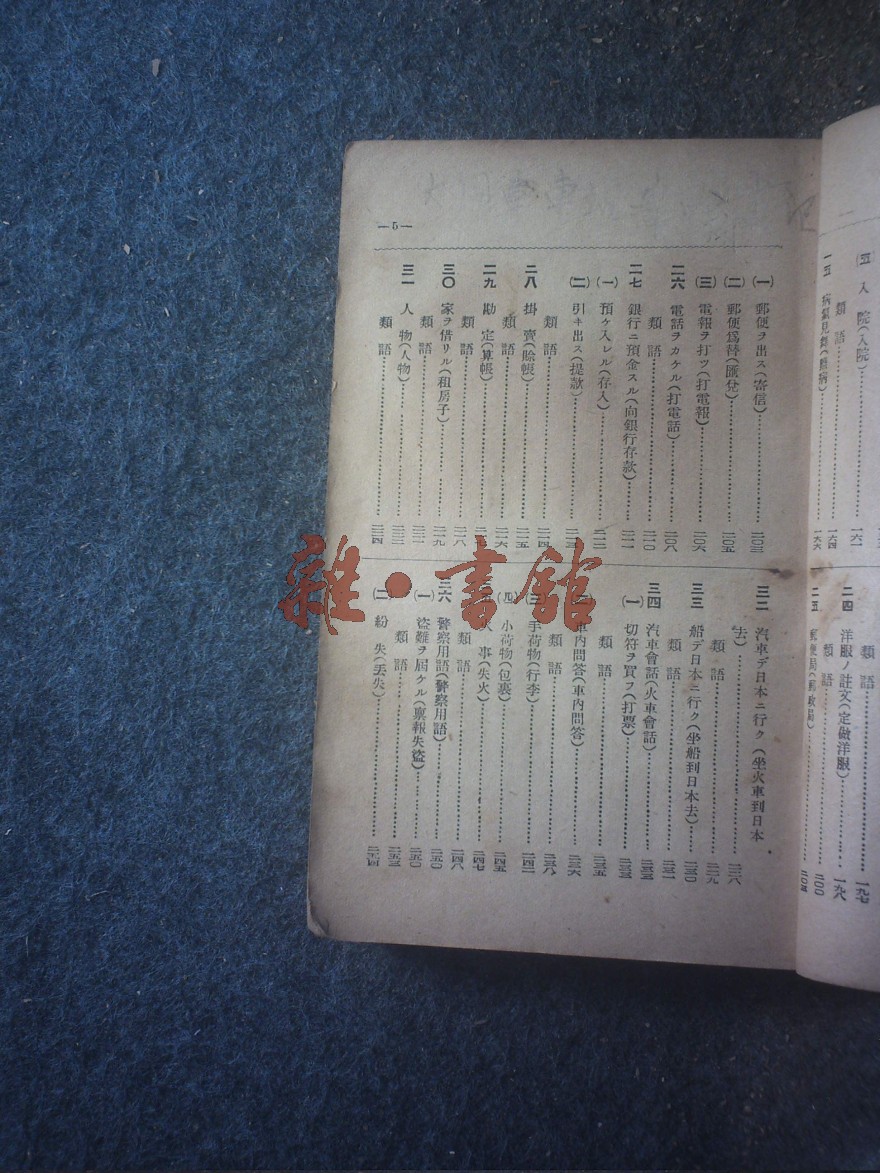 (五) 入院(入院)……一六一
類語……一六四
一五
一六六
二四 洋服ノ註文(定做洋服)……一九八
類語……二〇〇
類語……一九七
二五 郵便局(郵政局)
(一) 郵便ヲ出ス(寄信)……二〇三
(二) 郵便爲替(匯兌)……二〇五
(三) 電報ヲ打ツ(打電報)……二〇六
二六 電話ヲカケル(打電話)……二〇八
類語……二一〇
二七 銀行ニ預金スル(向銀行存款)……二一一
(一) 預ケ入レル(存入)
(二) 引キ出ス(提款)
類語……二一四
二八 掛賣(賒帳)……二一五
類語……二一六
二九 勘定(算帳)
類語……二一八
三〇 家ヲ借リル(租房子)……二一九
類語
三一 人物(人物)
類語……二二四
—5—
三二 汽車デ日本ニ行ク(坐火車到日本
去)
類語……二二九
三三 船デ日本ニ行ク(坐船到日本去)……二三〇
類語……二三一
三四 汽車會話(火車會話)
(一) 切符ヲ買フ(打票)
類語……二三五
車內問答(車內問答)……二三六
類語……二三八
(三) 手荷物(行李)……二四二
(四) 小荷物(包裹)……二四五
事(失火)……二四七
類語……二四八
三六 警察用語(警察用語)……二五〇
(一) 盜難ヲ屆ケル(禀報失盜)……二五〇
類語……二五三
(二) 紛失(丟失)……二五四
雜·書館